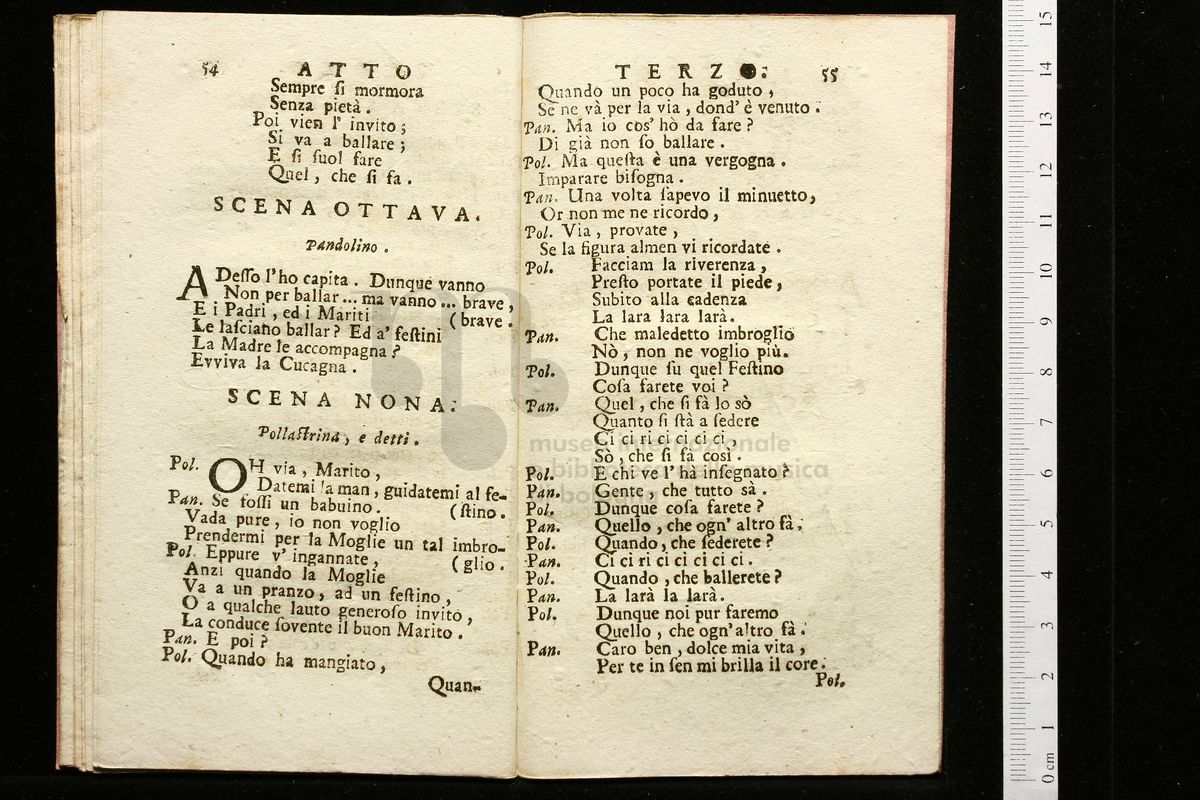 54 ATTO
Sempre ſi mormora
Senza pietà.
Poi vien l' invito;
Si va a ballare;
E ſi ſuol fare
Quel, che ſi fa.
SCENA OTTAVA.
Pandolino.
ADeſſo l'ho capita. Dunque vanno
Non per ballar... ma vanno... brave,
E i Padri, ed i Mariti (brave.
Le laſciano ballar? Ed a' feſtini
La Madre le accompagna?
Evviva la Cucagna.
SCENA NONA.
Pollaſtrina, e detti.
Pol. OH via, Marito,
Datemi la man, guidatemi al fe-
Pan. Se foſſi un babuino. (ſtino.
Vada pure, io non voglio
Prendermi per la Moglie un tal imbro-
Pol. Eppure v' ingannate, (glio.
Anzi quando la Moglie
Va a un pranzo, ad un feſtino,
O a qualche lauto generoſo invito,
La conduce ſovente il buon Marito.
Pan. E poi?
Pol. Quando ha mangiato,
Quan-
TERZO. 55
Quando un poco ha goduto,
Se ne và per la via, dond' è venuto.
Pan. Ma io cos' hò da fare?
Di già non ſo ballare.
Pol. Ma queſta è una vergogna.
Imparare biſogna.
Pan. Una volta ſapevo il minuetto,
Or non me ne ricordo,
Pol. Via, provate,
Se la figura almen vi ricordate.
Pol. Facciam la riverenza,
Preſto portate il piede,
Subito alla cadenza
La lara lara larà.
Pan. Che maledetto imbroglio
Nò, non ne voglio più.
Pol. Dunque ſu quel Feſtino
Coſa farete voi?
Pan. Quel, che ſi fà lo sò
Quanto ſi ſtà a ſedere
Ci ci ri ci ci ci ci,
Sò, che ſi fa così.
Pol. E chi ve l' hà inſegnato?
Pan. Gente, che tutto sà.
Pol. Dunque coſa farete?
Pan. Quello, che ogn' altro fà.
Pol. Quando, che ſederete?
Pan. Ci ci ri ci ci ci ci ci.
Pol. Quando, che ballerete?
Pan. La larà la larà.
Pol. Dunque noi pur faremo
Quello, che ogn' altro fà.
Pan. Caro ben, dolce mia vita,
Per te in ſen mi brilla il core.
Pol.
museo internazionale
e biblioteca della musica
di bologna
0 cm 1 2 3 4 5 6 7 8 9 10 11 12 13 14 15